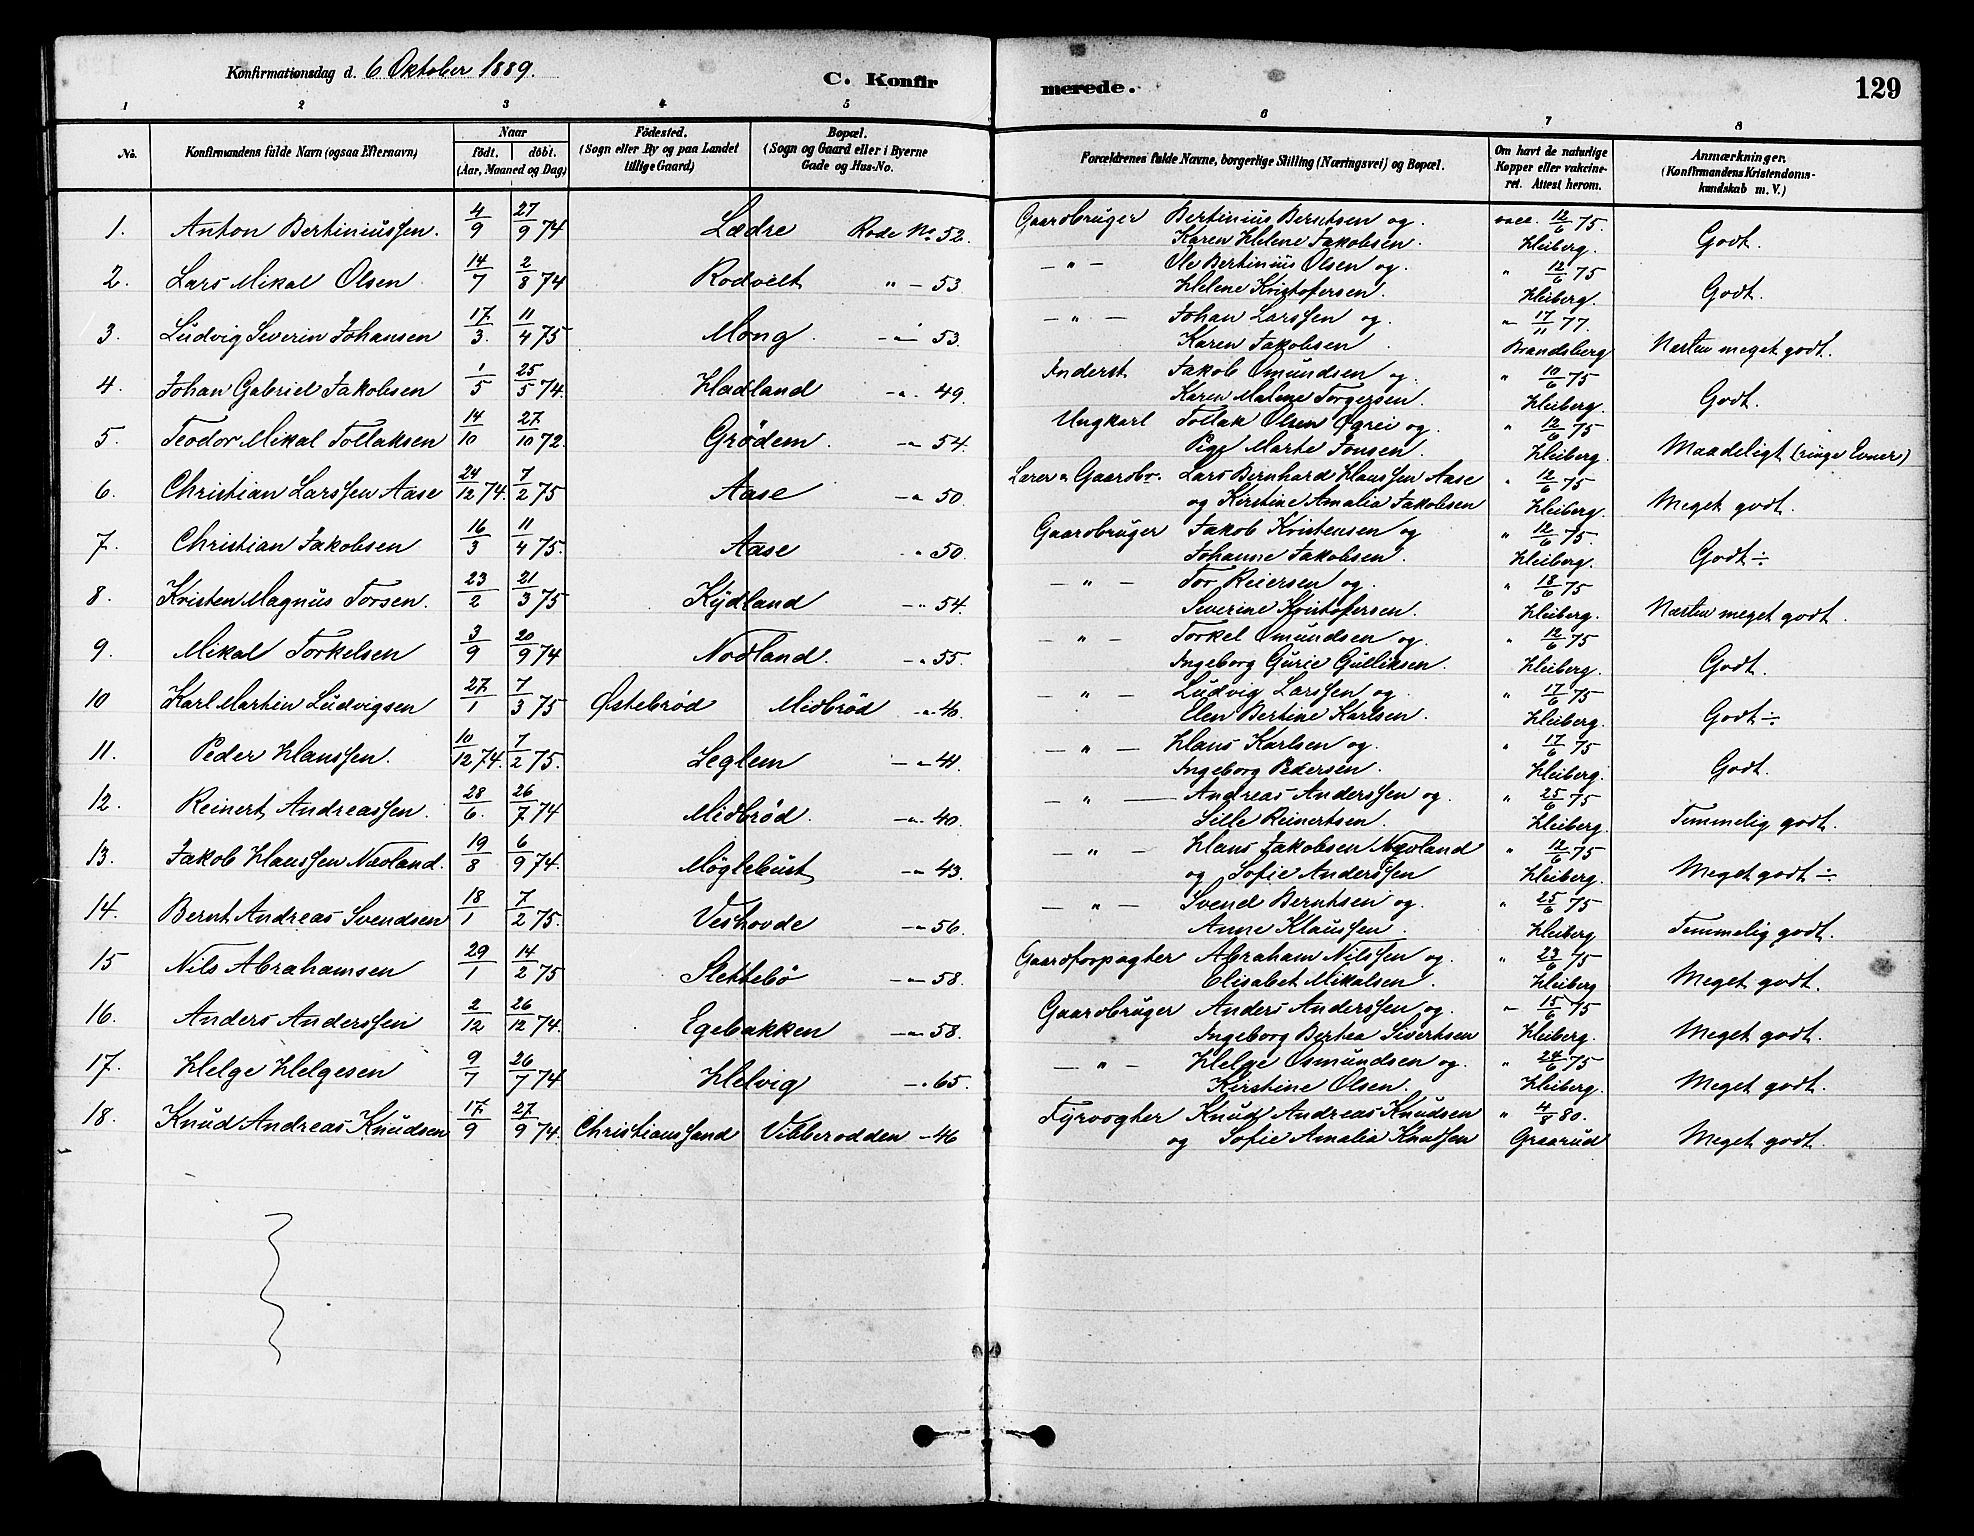 Konfirmationsdag d. 6 Oktober 1889.
C. Konfirmerede.
129
1 2 3 4 5 6 7 8
No.
Konfirmandens fulde Navn (ogsaa Efternavn)
Naar
født. døbt.
(Aar, Maaned og Dag)
Födested.
(Sogn eller By og paa Landet
tillige Gaard)
Bopæl.
(Sogn og Gaard eller i Byerne
Gade og Hus-No.
Forældrenes fulde Navne, borgerlige Stilling (Næringsvei) og Bopæl.
Om havt de naturlige
Kopper eller vakcine-
ret. Attest herom.
Anmærkninger.
(Konfirmandens Kristendoms-
kundskab m. V.)
1. Anton Bertiniussen. 4/9 27/9 74 Lædre Rode No 52. Gaardbruger Bertinius Berntsen og vacc. 12/6 75.
Karen Helene Jakobsen. Heiberg. Godt.
2. Lars Mikal Olsen 14/7 2/8 74 Rodvelt " - 53 - " - Ole Bertinius Olsen og. " 12/6 75
Helene Kristofersen. Heiberg. Godt.
3. Ludvig Severin Johansen 17/3. 11/4 75 Mong - " - 53. - " - Johan Larssen og. " 17/11 77.
Karen Jakobsen. Brandsberg Næsten meget godt.
4. Johan Gabriel Jakobsen 1/5 25/5 74. Hadland - " - 49. Inderst Jakob Omundsen og. " 10/6 75
Karen Malene Torgersen. Heiberg. Godt.
5. Teodor Mikal Tollaksen 14/10 27/10 72. Grødem. - " - 54. Ungkarl Tollak Olsen Øgrei og. " 12/6 75
Pige Marte Jonsen. Heiberg. Maadeligt (ringe Evner)
6. Christian Larssen Aase 24/12 74. 7/2 75 Aase - " - 50. Lærer & Gaardbr. Lars Bernhard Hanssen Aase " 12/6 75
og Kirstine Amalia Jakobsen Heiberg. Meget godt.
7. Christian Jakobsen 16/3 11/4 75. Aase " 50. Gaardbruger Jakob Kristensen og " 12/6 75.
Johanne Jakobsen. Heiberg. Godt ÷
8. Kristen Magnus Torsen. 23/2 21/3 75 Kydland - " 54. - " - Tor Reiersen og. " 18/6 75
Severine Kristofersen. Heiberg. Næsten meget godt.
9. Mikal Torkelsen 3/9 20/9 74 Nodland. - " 55. - " - Torkel Omundsen og. " 12/6 75
Ingeborg Gurie Gulliksen. Heiberg. Godt.
10 Karl Martin Ludvigsen 27/1 7/3 75 Østebrød Midbrød - " 40. - " - Ludvig Larssen og. " 17/6 75
Elen Bertine Karlsen. Heiberg. Godt ÷
11. Peder Hanssen. 10/12 74. 7/2 75. Leglem - " 41. - " - Hans Karlsen og. " 17/6 75
Ingeborg Pedersen. Heiberg. Godt.
12. Reinert Andreassen. 28/6. 26/7 74 Midbrød. - " 40. - " - Andreas Anderssen og. " 25/6 75
Sille Reinertsen. Heiberg. Temmelig godt.
13. Jakob Hanssen Nævland. 19/8 6/9 74. Møglebust - " 43. - " - Hans Jakobsen Nævland " 12/6 75
og Sofie Anderssen Heiberg. Meget godt ÷
14. Bernt Andreas Svendsen 18/1 7/2 75. Veshovde - " 56. - " - Svend Berntsen og. " 25/6 75
Anne Klaussen. Heiberg Temmelig godt.
15 Nils Abrahamsen 29/1 14/2 75 Slettebø - " 58. Gaardforpagter Abraham Nilssen og. " 23/6 75
Elisabet Mikalsen. Heiberg Meget godt.
16. Anders Anderssen 2/12 26/12 74. Egebakken - " 58. Gaardbruger Anders Anderssen og. " 15/6 75
Ingeborg Bertea Sivertsen Heiberg. Meget godt.
17. Helge Helgesen 9/7 26/7 74 Helvig - " 65. - " - Helge Osmundsen og. " 24/6 75
Kirstine Olsen. Heiberg. Meget godt.
18. Knud Andreas Knudsen 17/9 27/9 74. Christianssand Vibberodden - 46 Fyrvogter Knud Andreas Knudsen " 4/8 80.
og Sofie Amalia Knudsen Graarud Meget godt.